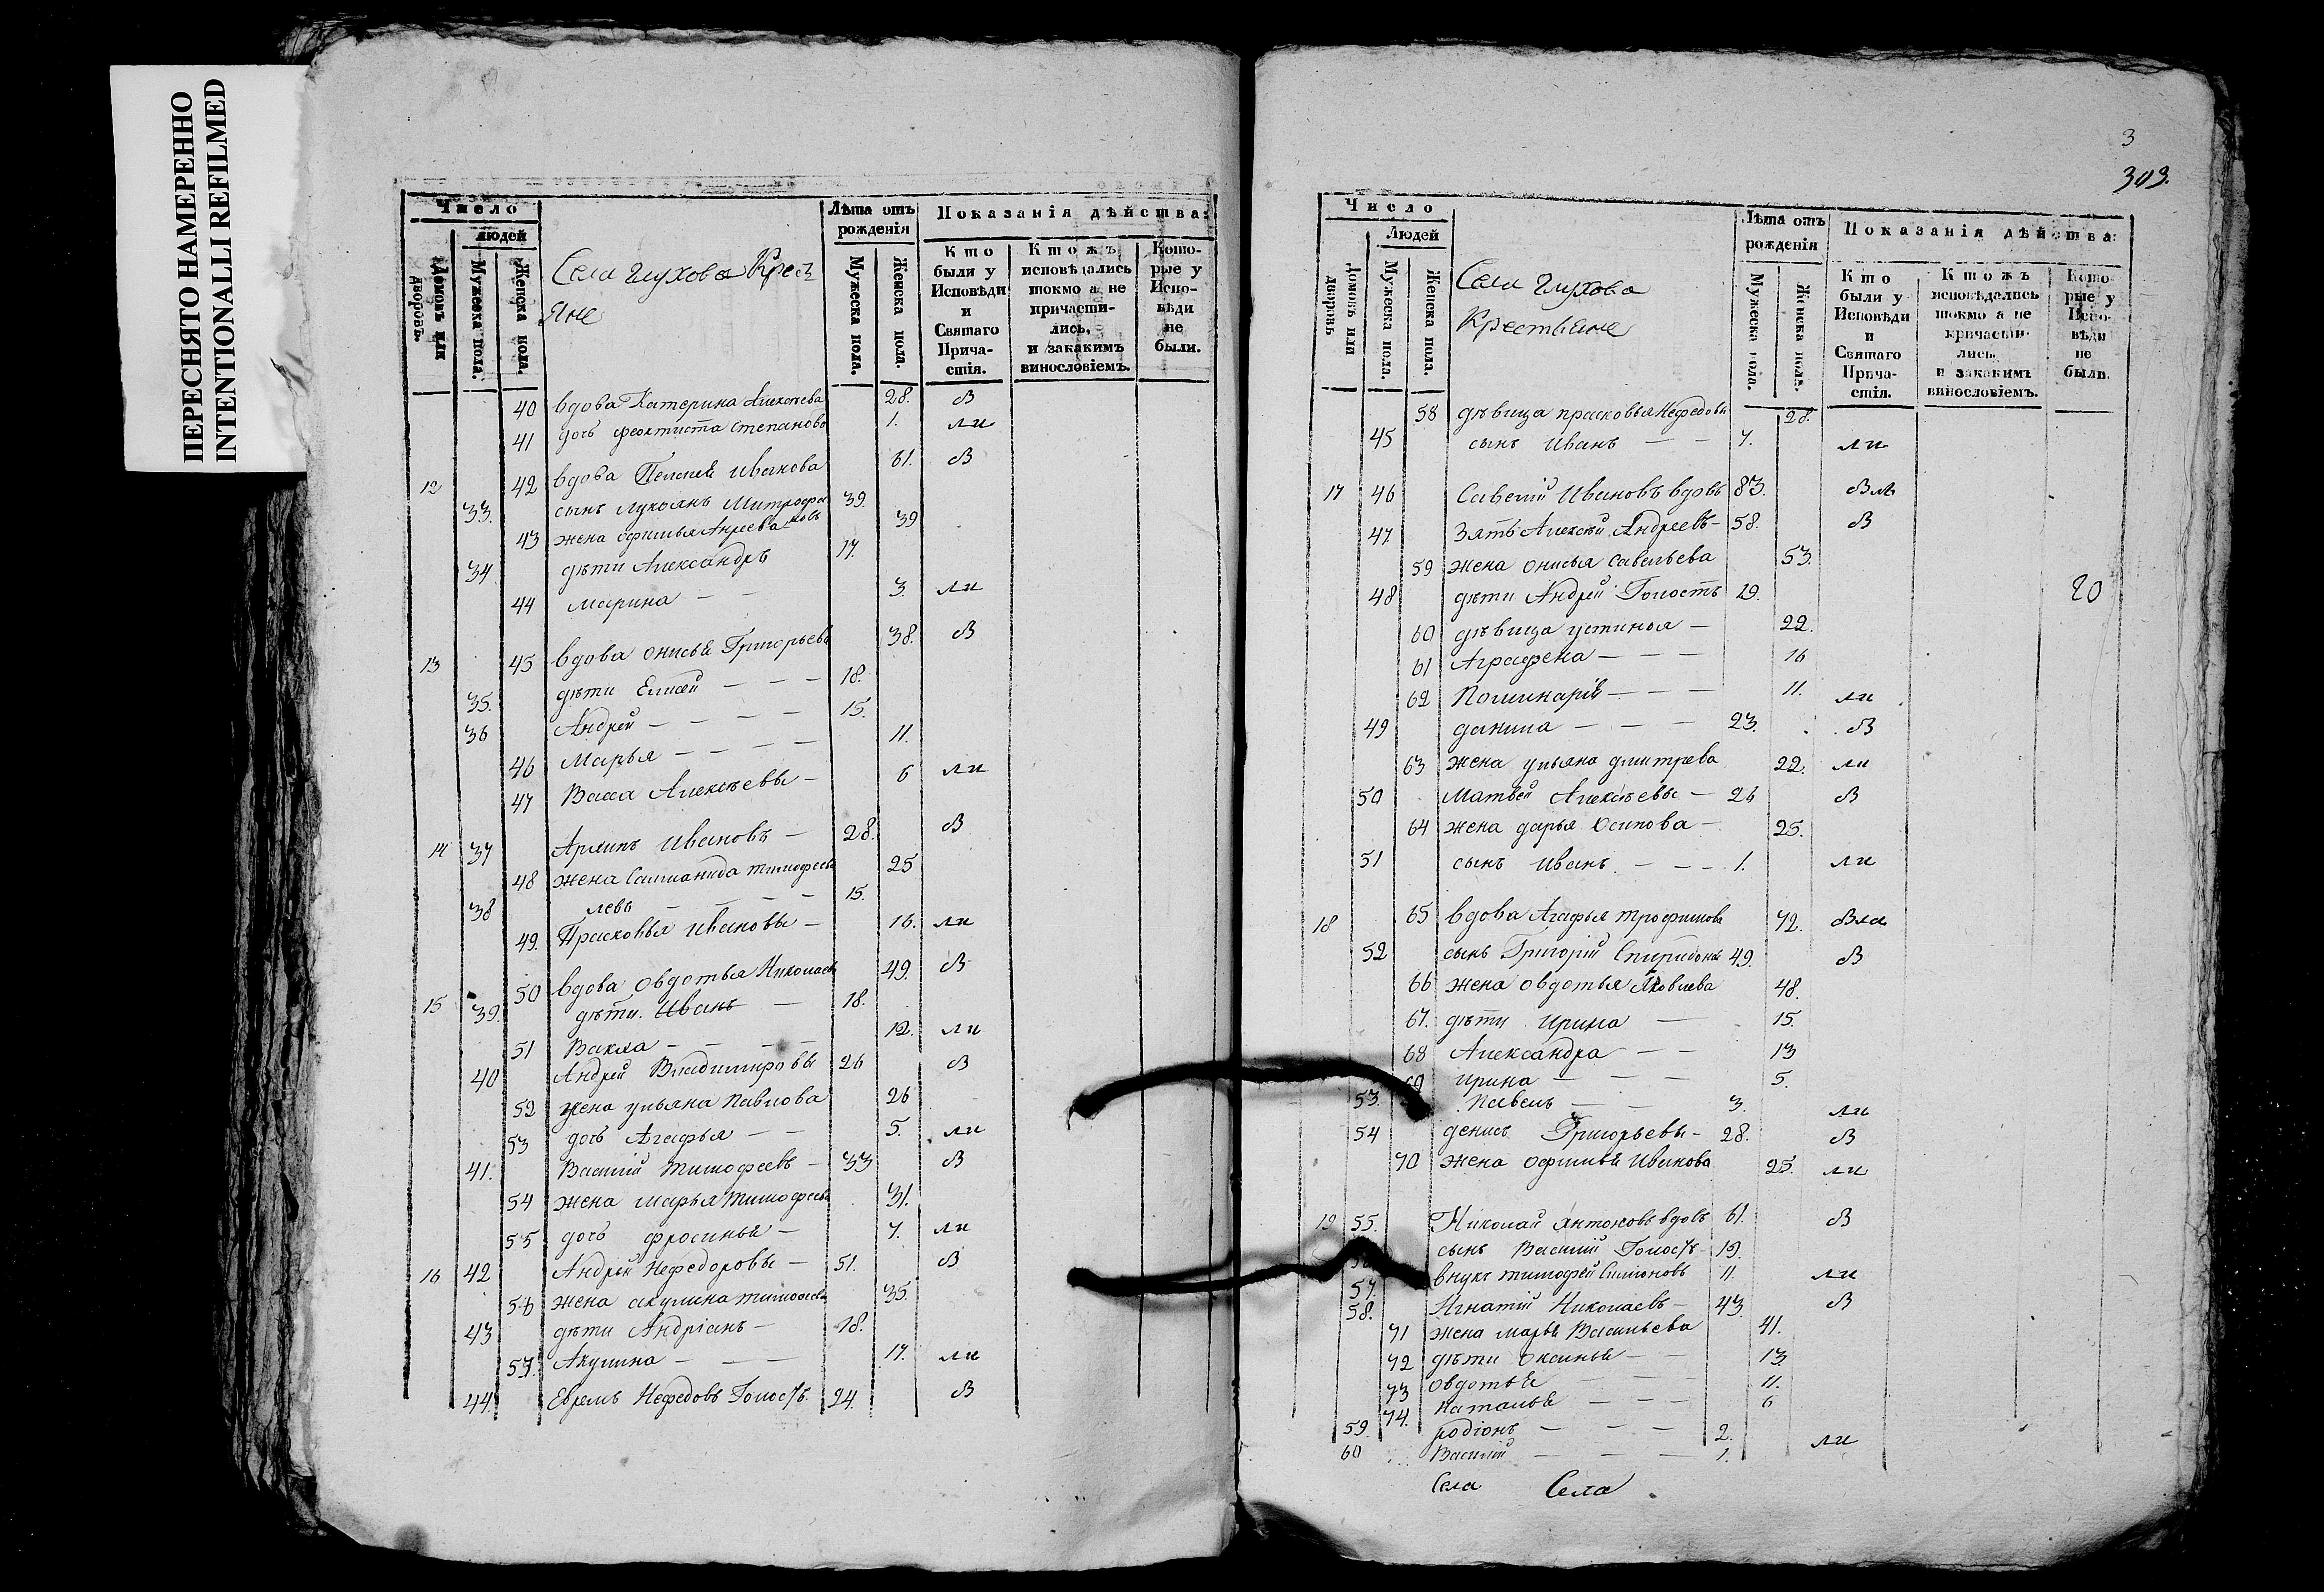 ПЕРЕСНЯТО НАМЕРЕННО
INTENTIONALLI REFILMED
Число
людей
Домовъ или дворовъ.
Мужеска пола.
Женска пола.
Села Глухова Кресть
яне
Лѣта отъ рожденія
Мужеска пола.
Женска пола.
Показанія дѣйства:
Кто были у Исповѣди и Святаго Причастія.
Ктожъ исповѣдались токмо а не причастились, и закакимъ винословіемъ.
Которые у Исповѣди не были.
40 вдова Катерина Алексѣева 28. В
41 дочь феоктиста степанова 1. ли
12 42 вдова Пелагея Иванова 61. В
33. сынъ лукоянъ Митрофановъ 39.
43 жена офимья Андреева 39
34 дѣти Александръ 17.
44 Марина — — 3. ли
13 45 вдова онисья Григорьева 38. В
35. дѣти Елисей — — — 18.
36 Андрей — — — — 15.
46 Марья — — — — 11.
47 Васса Алексѣевы — 6 ли
14 37 Архипъ Ивановъ — 28. В
48 жена Саломанида тимофеева 25
38 левъ — — — — 15.
49. Прасковья Ивановы — 16. ли
15 50 вдова Овдотья Николаева 49. В
39. дѣти Иванъ — 18.
51 Вакла — — — — 12. ли
40 Андрей Владимировы 26 В
52 жена ульяна Павлова 26
53 дочь Агафья — — 5. ли
41. Василій Тимофеевъ — 33 В
54 жена марья тимофеева 31.
55 дочь фросинья — 7. ли
16 42 Андрей Нефедоровы — 51. В
56 жена акулина тимофеева 35.
43 дѣти Андріанъ — 18.
57. Акулина — — — 17. ли
44. Ефремъ Нефедовъ Голостъ. 24. В
3
303.
Число
Людей
Домовъ или дворовъ
Мужеска пола.
Женска пола.
Села Глухова
Крестьяне
Лѣта отъ рожденія
Мужеска пола.
Женска пола.
Показанія дѣйства:
Кто были у Исповѣди и Святаго Причастія.
Ктожъ исповѣдались токмо а не причастились, и закакимъ винословіемъ.
Которые у Исповѣди не были.
58 дѣвица прасковья Нефедовы 28.
45 сынъ Иванъ — — 7. ли
17 46 Савелій Ивановъ вдовъ 83.
47. Зять Алексѣй Андреевъ — 58. В
59 жена онисья савельева 53.
48 дѣти Андрей Голостъ 29. 20
60 дѣвица устинья — 22.
61 Аграфена — — — 16
62 Полинарія — — — 11. ли
49 данила — — — 23. В
63 жена ульяна дмитрева 22. ли
50 Матвей Алексѣевы — 26 В
64 жена дарья Осипова — 25.
51 сынъ Иванъ — — — 1. ли
18 65 вдова Агафья трофимова 72.
52 сынъ Григорій Спиридоновъ 49. В
66 жена овдотья Яковлева 48.
67. дѣти Ирина — 15.
68 Александра — — 13
69 ирина — — — 5.
53. Павелъ — — 3. ли
54 денисъ Григорьевы — 28. В
70 жена офимья Иванова 25. ли
19 55. Николай Антоновъ вдовъ 61. В
сынъ Василій Голостъ — 19.
57. внукъ тимофей Симіоновъ 11. ли
58. Игнатій Николаевъ — 43. В
71 жена марья Васильева 41.
72 дѣти Оксинья — — 13.
73 Овдотья — — — 11.
74. Наталья — — — 6
59. родіонъ — — — 2.
60 Василій — — — 1. ли
Села Села